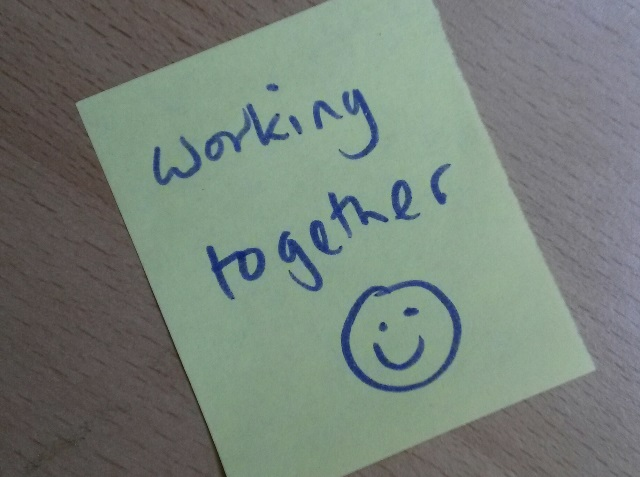 working
together